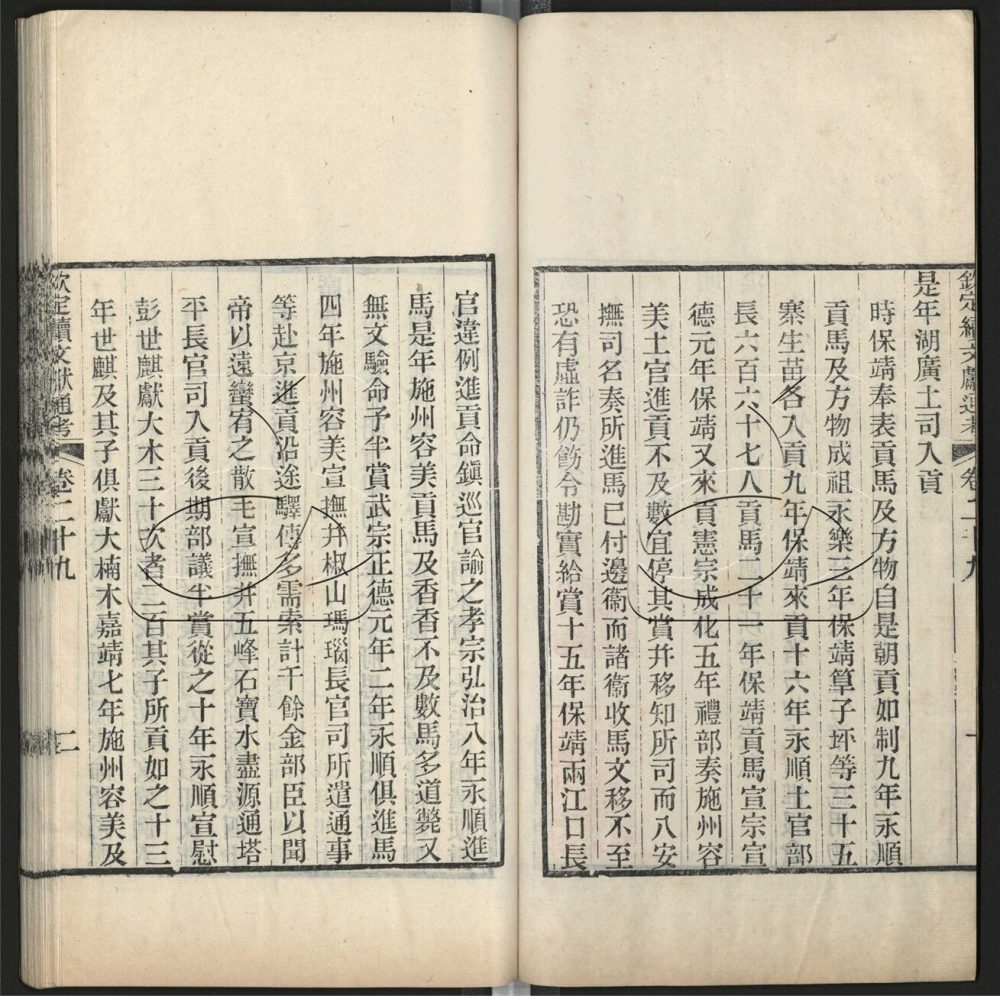 欽定續文獻通考 卷二十九 一
是年湖廣土司入貢
時保靖奉表貢馬及方物自是朝貢如制九年永順
貢馬及方物成祖永樂三年保靖箄子坪等三十五
寨生苗各入貢九年保靖來貢十六年永順土官部
長六百六十七人貢馬二千一年保靖貢馬宣宗宣
德元年保靖又來貢憲宗成化五年禮部奏施州容
美土官進貢不及數宜停其賞幷移知所司而八安
撫司名奏所進馬已付邊衞而諸衞收馬文移不至
恐有虛詐仍飭令勘實給賞十五年保靖兩江口長
官違例進貢命鎭巡官諭之孝宗弘治八年永順進
馬是年施州容美貢馬及香香不及數馬多道斃又
無文驗命予半賞武宗正德元年二年永順俱進馬
四年施州容美宣撫幷椒山瑪瑙長官司所遣通事
等赴京進貢沿途驛傳多需索計千餘金部臣以聞
帝以遠蠻宥之散毛宣撫幷五峰石寶水盡源通塔
平長官司入貢後期部議半賞從之十年永順宣慰
彭世麒獻大木三十次者二百其子所貢如之十三
年世麒及其子俱獻大楠木嘉靖七年施州容美及
欽定續文獻通考 卷二十九 二